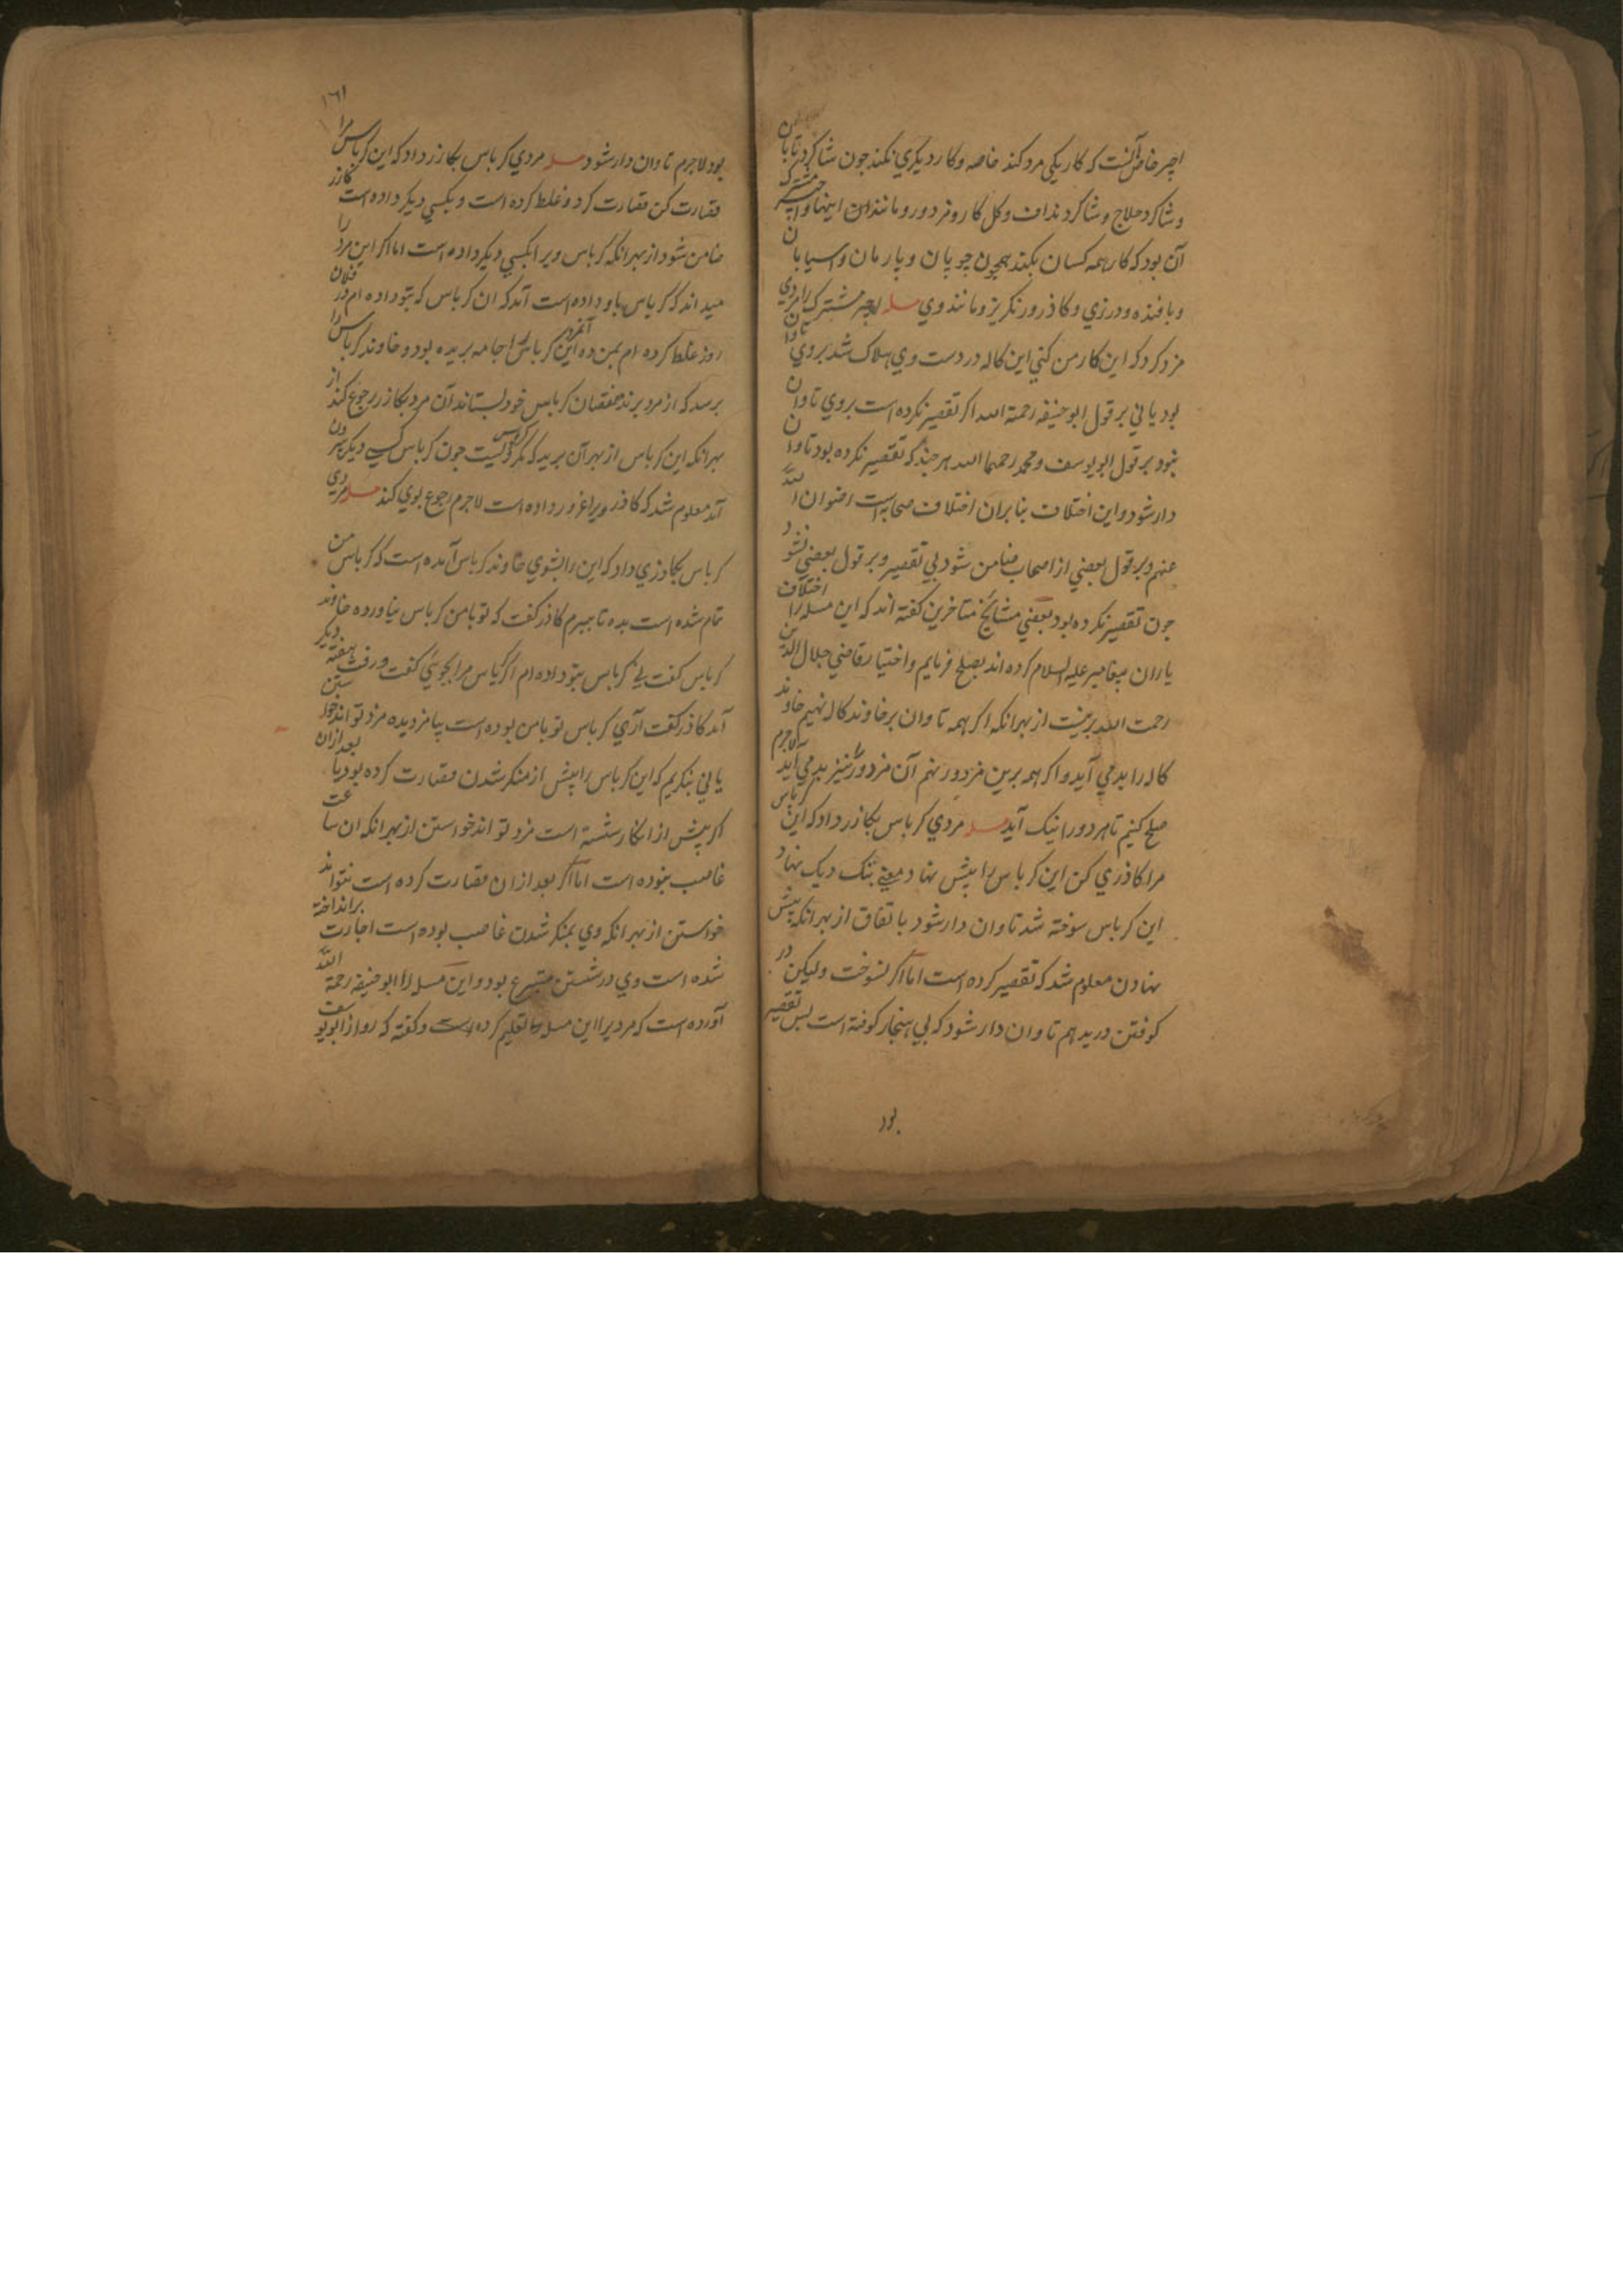 اجیر خاص آنست که کار یکی مرد کند خاصه و کار دیکری نکند جون شاکرد تابان
و شاکرد حلاج و شاکرد نداف و کل کار و مزدور و مانند این اینها و اجیر مشترک
آن بود که کار همه کسان بکند همچون چوپان و پارمان و اسیابان
و بافنده و درزی و کاذر و رنکریز و مانند وی مسله اجیر مشترک را مردی
مزد کرد که این کار من کنی این کاله در دست وی هلاک شد بروی تاوان
بود یا نی بر قول ابو حنیفه رحمة الله اکر تقصیر نکرده است بروی تاوان
نبود بر قول ابو یوسف و محمد رحمهما الله هر چند که تقصیر نکرده بود تاوان
دار شود و این اختلاف بنا بران اختلاف صحابه است رضوان الله
عنهم و بر قول بعضی از اصحاب ضامن شود بی تقصیر و بر قول بعضی نشود
جون تقصیر نکرده بود بعضی مشائخ متاخرین کفته اند که این مسله را اختلاف
یاران پیغامبر علیه السلام کرده اند بصلح فرمایم و اختیار قاضی جلال الدین
رحمت الله برینست از بهر انکه اکر همه تاوان بر خاوند کاله نهیم خاوند
کاله را بد می آید و اکر همه برین مزدور نهم آن مزدور را نیز بد می آید لاجرم
صلح کنیم تا هر دو را نیک آید مسله مردی کرباس بکازر داد که این کرباس
مرا کاذری کن این کرباس را پیش نهاد معنی تنک دیک نهاد
این کرباس سوخته شد تاوان دار شود باتفاق از بهر انکه پیش
نهادن معلوم شد که تقصیر کرده است اما اکر نسوخت ولیکن در
کوفتن درید هم تاوان دار شود که بی هنجار کوفته است پس تقصیر
بود
۱۶۱
بود لاجرم تاوان دار شود مسله مردی کرباس بکازر داد که این کرباس مرا
قصارت کن قصارت کرد و غلط کرده است و بکسی دیکر داده است کازر
ضامن شود از بهر انکه کرباس ویرا بکسی دیکر داده است اما اکر این مرد را
میداند که کرباس باو داده است آمد که ان کرباس که بتو داده ام در فلان
روز غلط کرده ام بمن ده آنمرد این کرباس را جامه بریده بود و خاوند کرباس را
برسد که از مرد برنده نقصان کرباس خود بستاند آن مرد بکازر رجوع کند از
بهر انکه این کرباس از بهر آن برید که مکر کرباس ویست جون کرباس کسی دیکر بیرون
آمد معلوم شد که کاذر ویرا غرور داده است لاجرم رجوع بوی کند مسله مردی
کرباس بکاذری داد که این را بشوی خاوند کرباس آمده است که کرباس من
تمام شده است بده تا ببرم کاذر کفت که تو بامن کرباس نیاورده خاوند
کرباس کفت بلی کرباس بتو داده ام اکر کرباس مرا بجویی کفت و رفت هفته دیکر
آمد کاذر کفت آری کرباس تو بامن بوده است بیا مزد بده مزد تواند خواستن
یا نی بنکریم که این کرباس را پیش از منکر شدن قصارت کرده بود یا بعد ازان
اکر پیش از انکار شسته است مزد تواند خواستن از بهر انکه ان ساعت
غاصب نبوده است اما اکر بعد ازان قصارت کرده است نتواند
خواستن از بهر انکه وی بمنکر شدن غاصب بوده است اجارت برانداخته
شده است وی در شستن متبرع بود و این مسله را ابو حنیفه رحمة الله
آورده است که مردیرا این مسله را تعلیم کرده است و کفته که رو از ابو یوسف